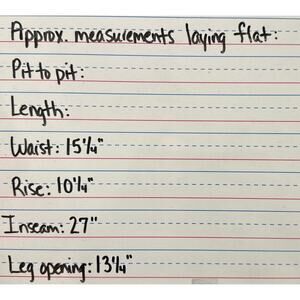 Approx. measurements laying flat:
Pit to pit:
Length:
Waist: 15 1/4"
Rise: 10 1/4"
Inseam: 27"
Leg opening: 13 1/4"